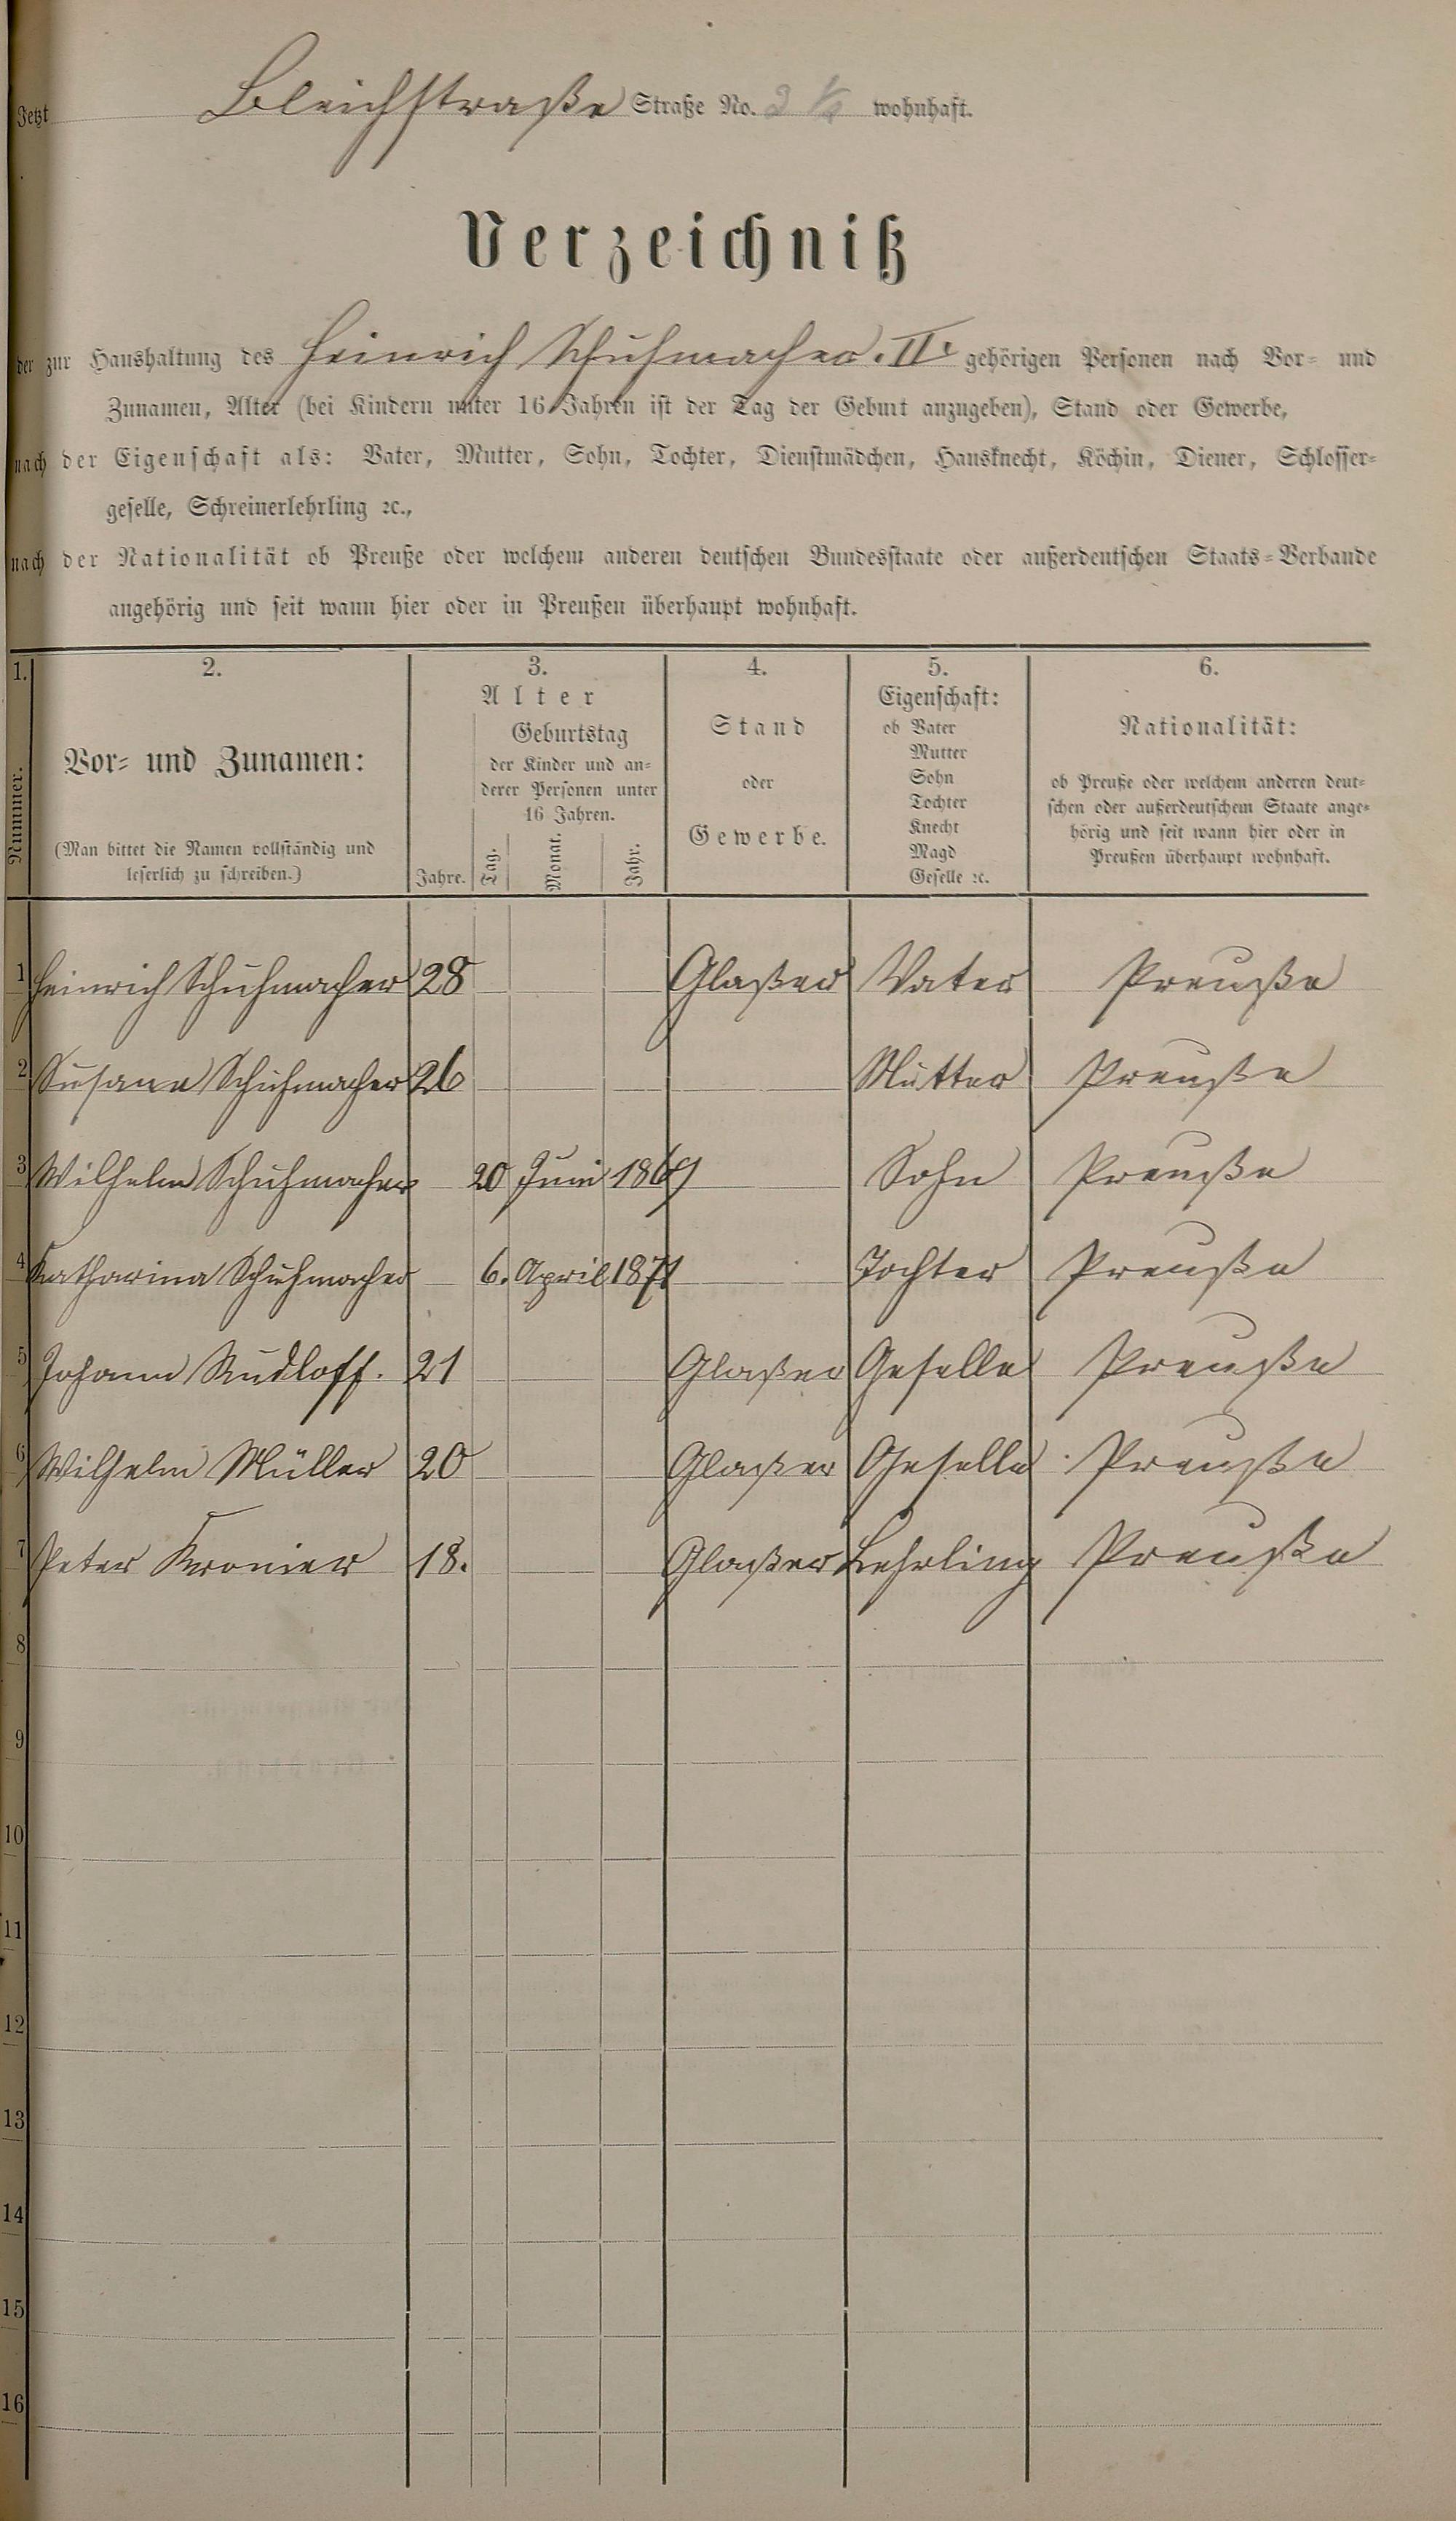 Jetzt Bleichstraße Straße No. wohnhaft.
Verzeichniß
der zur Haushaltung des Heinrich Schuhmacher. II. gehörigen Personen nach Vor- und
Zunamen, Alter (bei Kindern unter 16 Jahren ist der Tag der Geburt anzugeben), Stand oder Gewerbe,
nach der Eigenschaft als: Vater, Mutter, Sohn, Tochter, Dienstmädchen, Hausknecht, Köchin, Diener, Schlosser-
geselle, Schreinerlehrling ꝛc.,
nach der Nationalität ob Preuße oder welchem anderen deutschen Bundesstaate oder außerdeutschen Staats-Verbande
angehörig und seit wann hier oder in Preußen überhaupt wohnhaft.
1. 2. 3. 4. 5. 6.
Nummer.
Vor- und Zunamen:
(Man bittet die Namen vollständig und
leserlich zu schreiben.)
Alter
Geburtstag
der Kinder und an-
derer Personen unter
16 Jahren.
Jahre. Tag. Monat. Jahr.
Stand
oder
Gewerbe.
Eigenschaft:
ob Vater
Mutter
Sohn
Tochter
Knecht
Magd
Geselle ꝛc.
Nationalität:
ob Preuße oder welchem anderen deut-
schen oder außerdeutschem Staate ange-
hörig und seit wann hier oder in
Preußen überhaupt wohnhaft.
1 Heinrich Schuhmacher 28 Glaßer Vater Preuße
2 Susana Schuhmacher 26 Mutter Preuße
3 Wilhelm Schuhmacher 20 Juni 1869 Sohn Preuße
4 Katharina Schuhmacher 6. April 1871 Tochter Preuße
5 Johann Rudloff. 21 Glaßer Geselle Preuße
6 Wilhelm Müller 20 Glaßer Geselle Preuße
7 Peter Kronier 18. Glaßer Lehrling Preuße
8
9
10
11
12
13
14
15
16